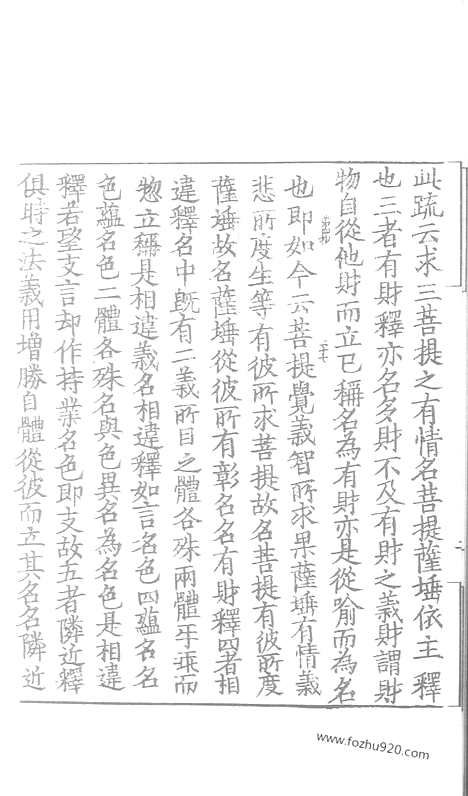 此疏云求三菩提之有情名菩提薩埵依主釋
也三者有財釋亦名多財不及有財之義財謂財
物自從他財而立已稱名為有財亦是從喻而為名
也即如今云菩提覺義智所求果薩埵有情義
悲所度生等有彼所求菩提故名菩提有彼所度
薩埵故名薩埵從彼所有彰名名有財釋四者相
違釋名中既有二義所目之體各殊兩體互乖而
惣立稱是相違義名相違釋如言名色四蘊名名
色蘊名色二體各殊名與色異名為名色是相違
釋若望支言却作持業名色即支故五者隣近釋
俱時之法義用增勝自體從彼而立其名名隣近
www.fozhu920.com